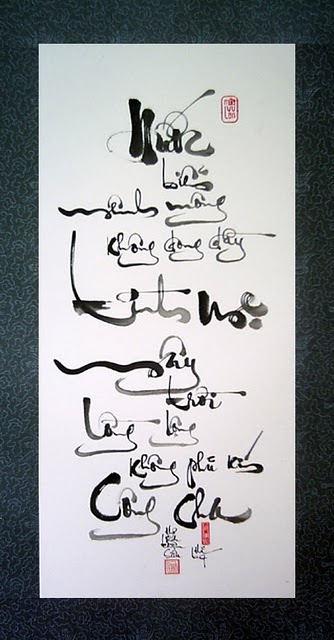 Nước
biển
mênh mông
không đong đầy
tình Mẹ
Mây
trời
lồng lộng
không phủ kín
Công Cha